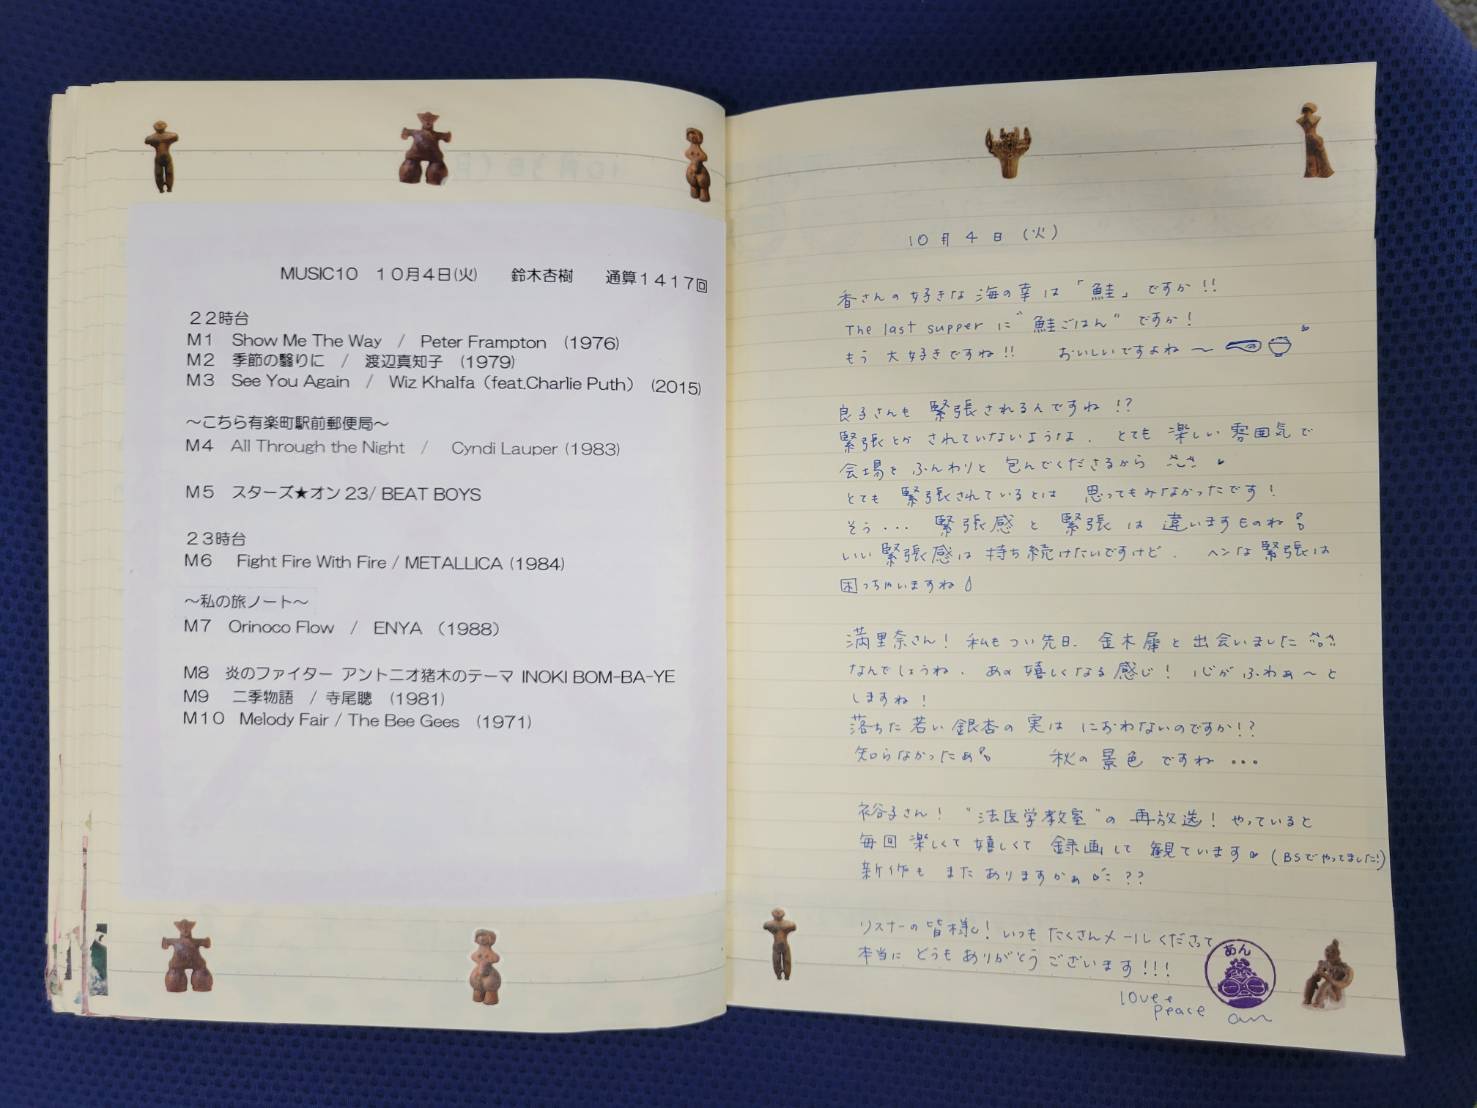 MUSIC10　１０月４日(火)　　鈴木杏樹　　通算１４１７回
２２時台
M１　Show Me The Way　/　Peter Frampton　(1976)
M２　季節の翳りに　/　渡辺真知子　(1979)
M３　See You Again　/　Wiz Khalfa（feat.Charlie Puth）　(2015)
～こちら有楽町駅前郵便局～
M４　All Through the Night　/　Cyndi Lauper (1983)
M５　スターズ★オン23/ BEAT BOYS
２３時台
M６　Fight Fire With Fire / METALLICA (1984)
～私の旅ノート～
M７　Orinoco Flow　/　ENYA　（1988）
M８　炎のファイター アントニオ猪木のテーマ INOKI BOM-BA-YE
M９　二季物語　/ 寺尾聰　(1981)
M１０　Melody Fair / The Bee Gees　(1971)
10月4日(火)
香さんの好きな海の幸は「鮭」ですか!!
The last supper に"鮭ごはん"ですか!
もう大好きですね!!　おいしいですよね〜
良子さんも緊張されるんですね!?
緊張とかされていないような、とても楽しい雰囲気で
会場をふんわりと包んでくださるから
とても緊張されているとは思ってもみなかったです!
そう... 緊張感と緊張は違いますものね
いい緊張感は持ち続けたいですけど、ヘンな緊張は
困っちゃいますね
満里奈さん! 私もつい先日、金木犀と出会いました
なんでしょうね、あの嬉しくなる感じ! 心がふわぁ〜と
しますね!
落ちた若い銀杏の実はにおわないのですか!?
知らなかったぁ　秋の景色ですね...
裕子さん! "法医学教室"の再放送! やっていると
毎回楽しくて嬉しくて録画して観ています (BSでやってました!)
新作もまたありますかぁ??
リスナーの皆様! いつもたくさんメールくださって
本当にどうもありがとうございます!!!
あん
love+
peace
an